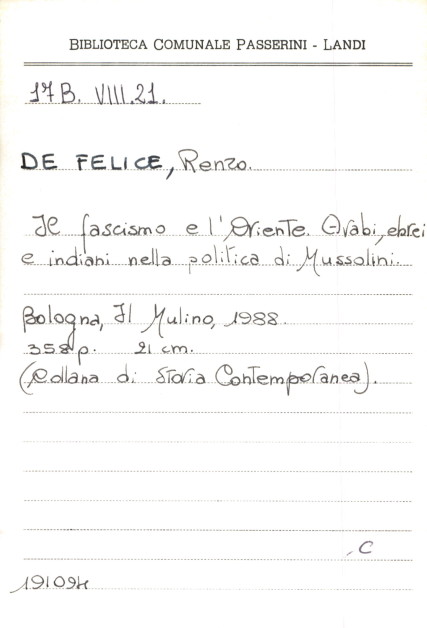 BIBLIOTECA COMUNALE PASSERINI - LANDI
17 B. VIII.21.
DE FELICE, Renzo.
Il fascismo e l'Oriente. Arabi, ebrei
e indiani nella politica di Mussolini.
Bologna, Il Mulino, 1988.
358 p. 21 cm.
(Collana di Storia Contemporanea).
, C
191094